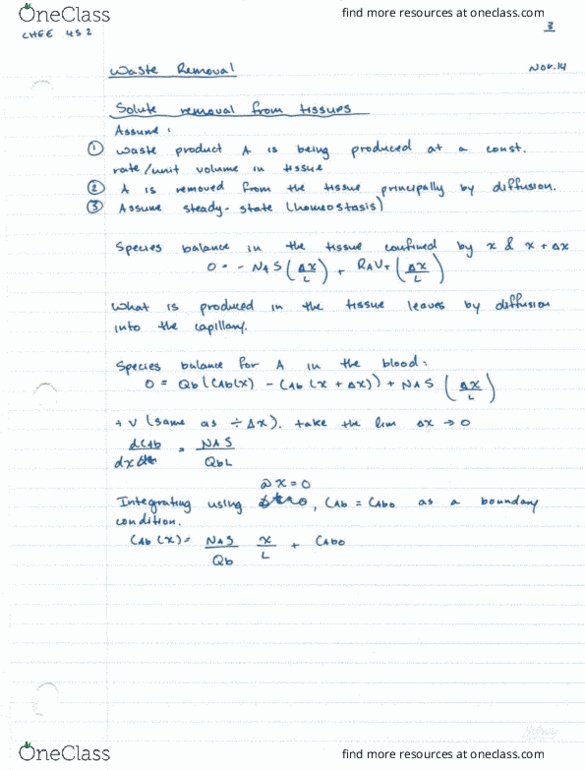 OneClass
find more resources at oneclass.com
CHEE 452
3
Nov. 14
Waste Removal
Solute removal from tissues
Assume:
① waste product A is being produced at a const.
rate/unit volume in tissue
② A is removed from the tissue principally by diffusion.
③ Assume steady-state (homeostasis)
Species balance in the tissue confined by x & x + Δx
0 = - NAS (Δx/L) + RAVT (Δx/L)
What is produced in the tissue leaves by diffusion
into the capillary.
Species balance for A in the blood:
0 = Qb (CAb(x) - CAb (x + Δx)) + NAS (Δx/L)
÷ V (same as ÷ Δx), take the lim Δx → 0
dCAb/dx = NAS/QbL
@ x = 0
Integrating using , CAb = CAbo as a boundary
condition.
CAb (x) = NAS/Qb x/L + CAbo
OneClass
find more resources at oneclass.com